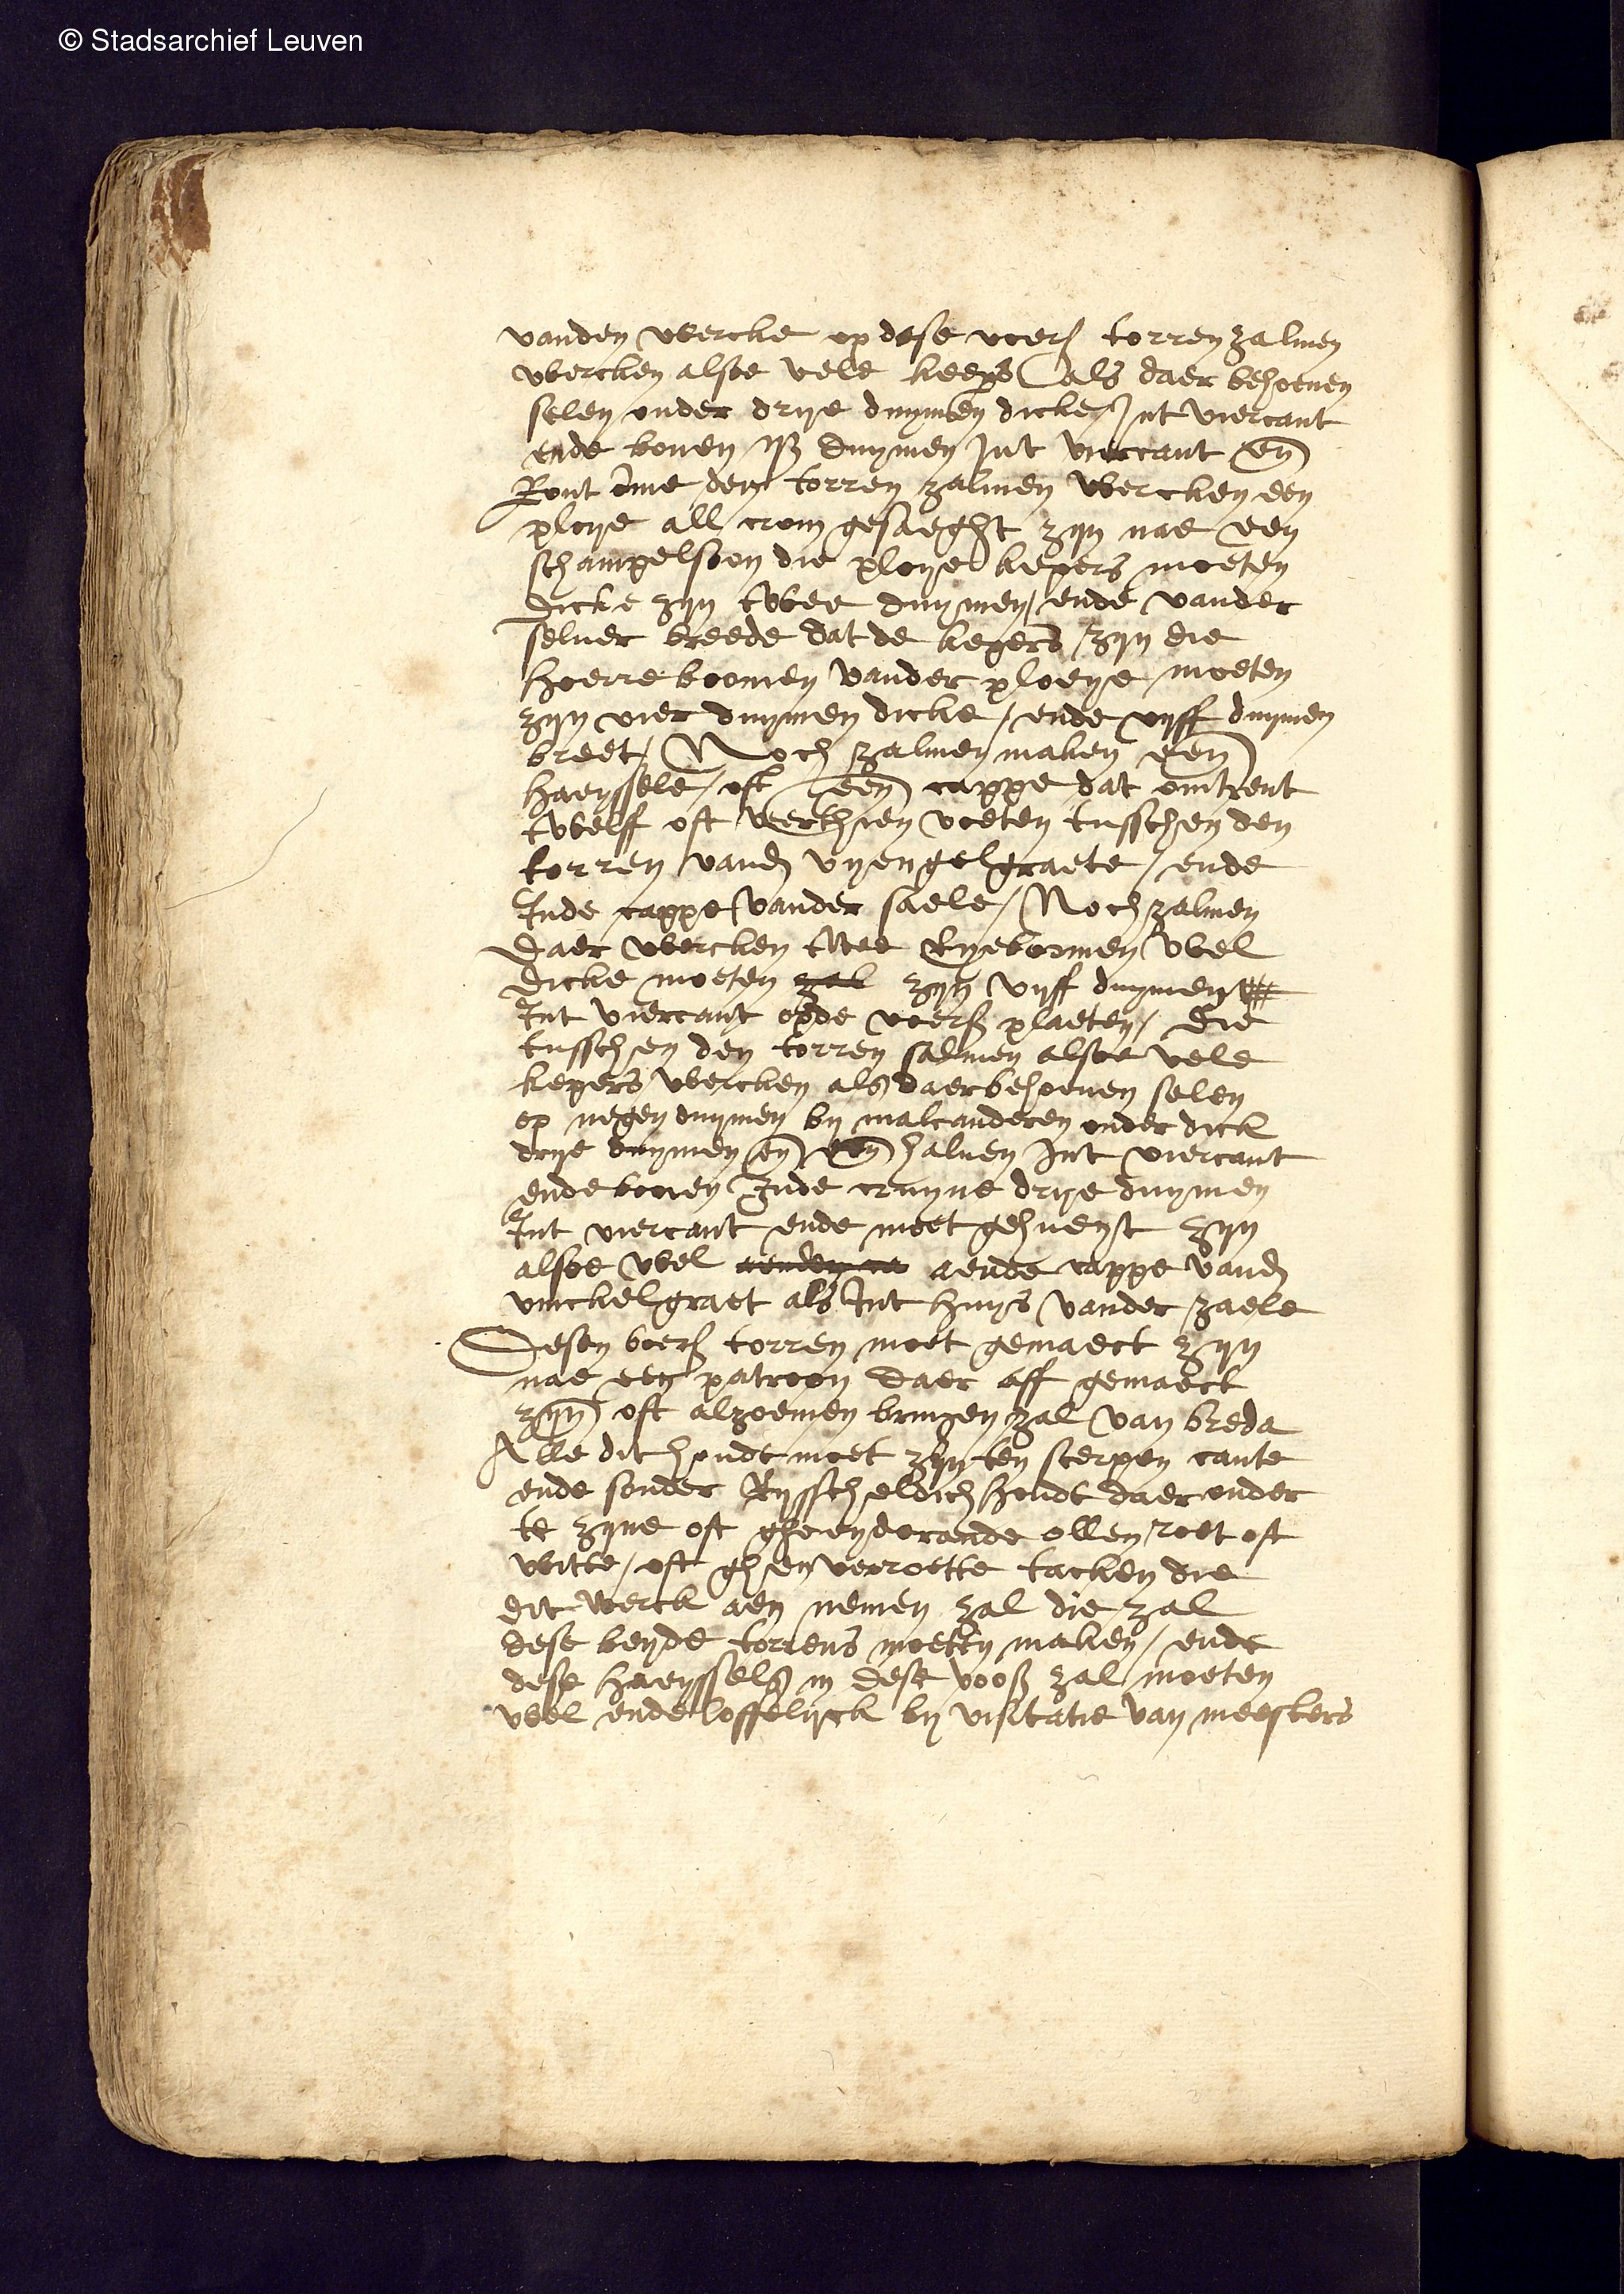 © Stadsarchief Leuven
vanden wercke op dese voers torren zalmen
wercken alsoe vele keepers als daer behoeven
selen onder drye duymen dicke Int viercant
ende boven duymen Int viercant en
Ront ome den torren zalmen wercken een
ploye all crom gesaeght zyn nae een
schampelioen die ploye kepers moeten
dicke zyn twee duymen/ ende vander
selver breede dat de kepers zyn die
boomen vander ployye moeten
zyn vier duymen dicke / ende vyff duymen
breet/ Noch zalmen maken een
haeyssele / oft een cappe dat omtrent
twelff oft veerthien voeten tusschen den
torren vand vyengelgraete / ende
Inde cappe vander saele / Noch zalmen
daer wercken twee Ryeboemen wel
dicke moeten zal zyn vyff duymen
Int viercant opde voers plaeten / die
tusschen den torren salmen alsoe vele
kepers wercken als daer behoeven selen
op negen duymen by malcanderen onder dick
drye duymen en een halven Int viercant
ende boven Inde cruyne drye duymen
Int viercant ende moet gehuenst zyn
alsoe wel aenden ca aende cappe vand
vinckelgraet als Int huys vander zaele
Desen voers torren moet gemaect zyn
nae een patroon daer aff gemaect
zyn oft alzoemen bringen zal van breda
Alle dit houdt moet zyn ten scerpen cante
ende sonder Rysscheldich houdt daer onder
te zyne oft gheen ollen roet oft
witte / oft gheen verroette tacken die
dit werck aen nemen zal die zal
dese beyde torrens moeten maken / ende
dese haeyssels in dese zal moeten
wel ende loffelyck by visitatie van meesters